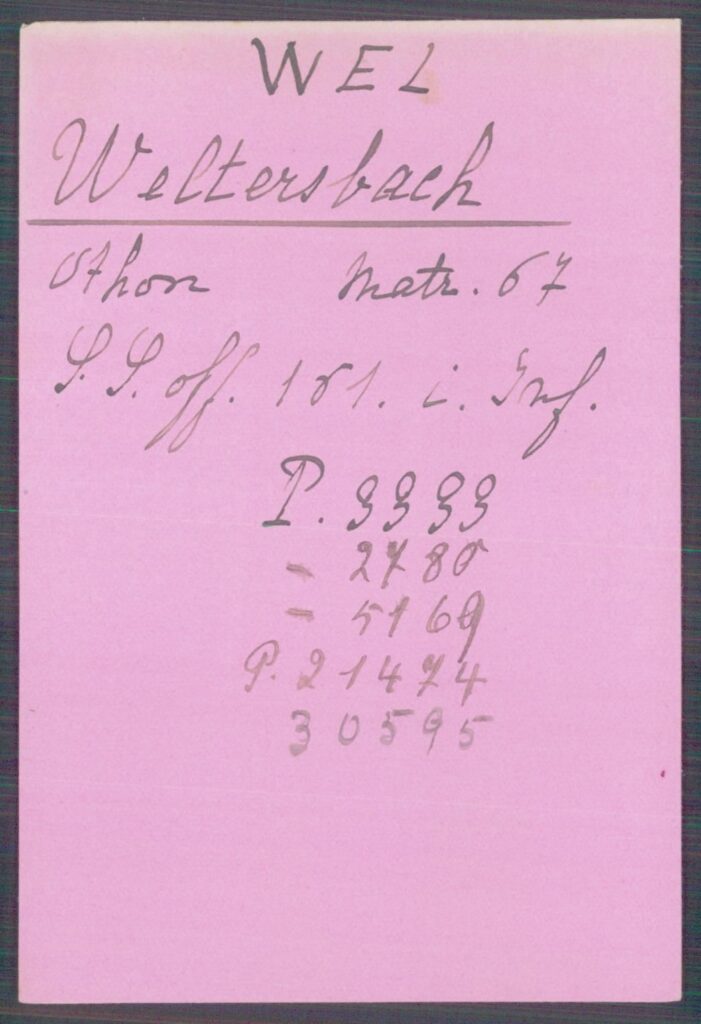 WEL
Weltersbach
Othon Matr. 67
S. S. off. 181. i. Inf.
P. 3333
- 2780
- 5169
P. 21474
30595